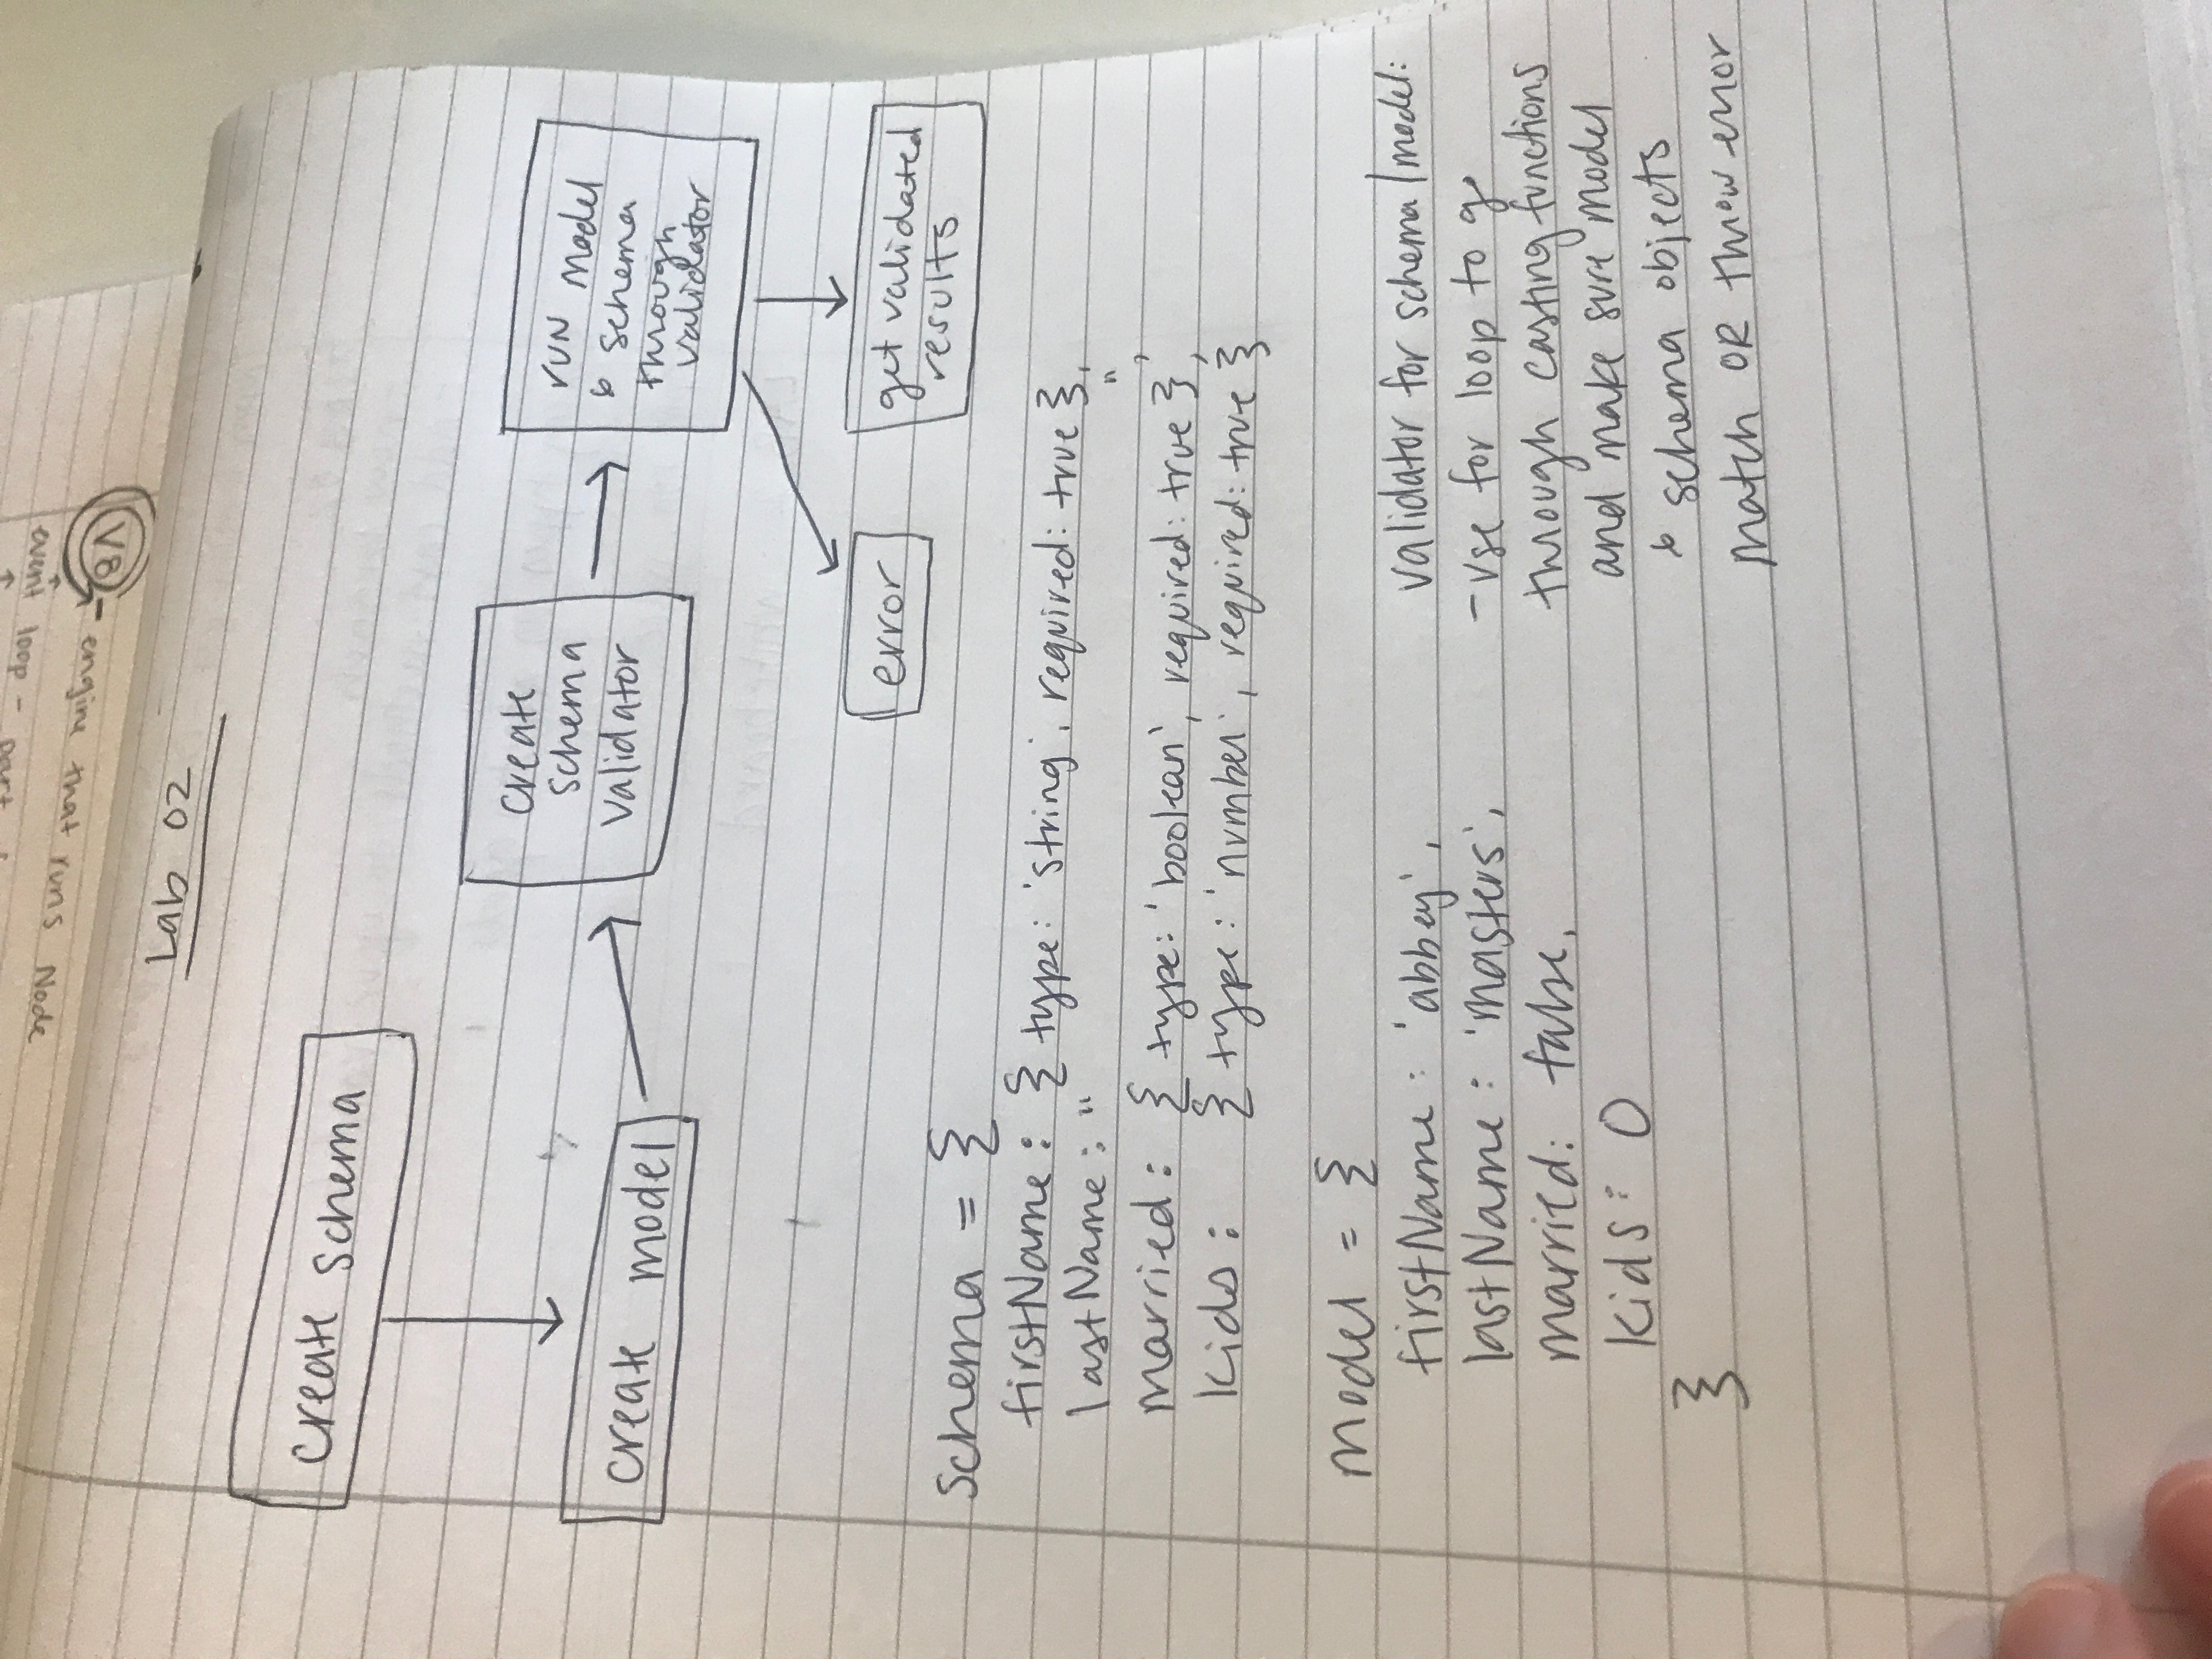 event loop -
V8 - engine that runs Node
Lab 02
create schema
create model
create
schema
validator
run model
& schema
through
validator
error
get validated
results
schema = {
firstName: { type: 'string', required: true },
lastName: " ",
married: { type: 'boolean', required: true },
kids: { type: 'number', required: true }
model = {
firstName: 'abbey',
lastName: 'masters',
married: false,
kids: 0
}
validator for schema/model:
- use for loop to go
through casting functions
and make sure model
& schema objects
match OR throw error